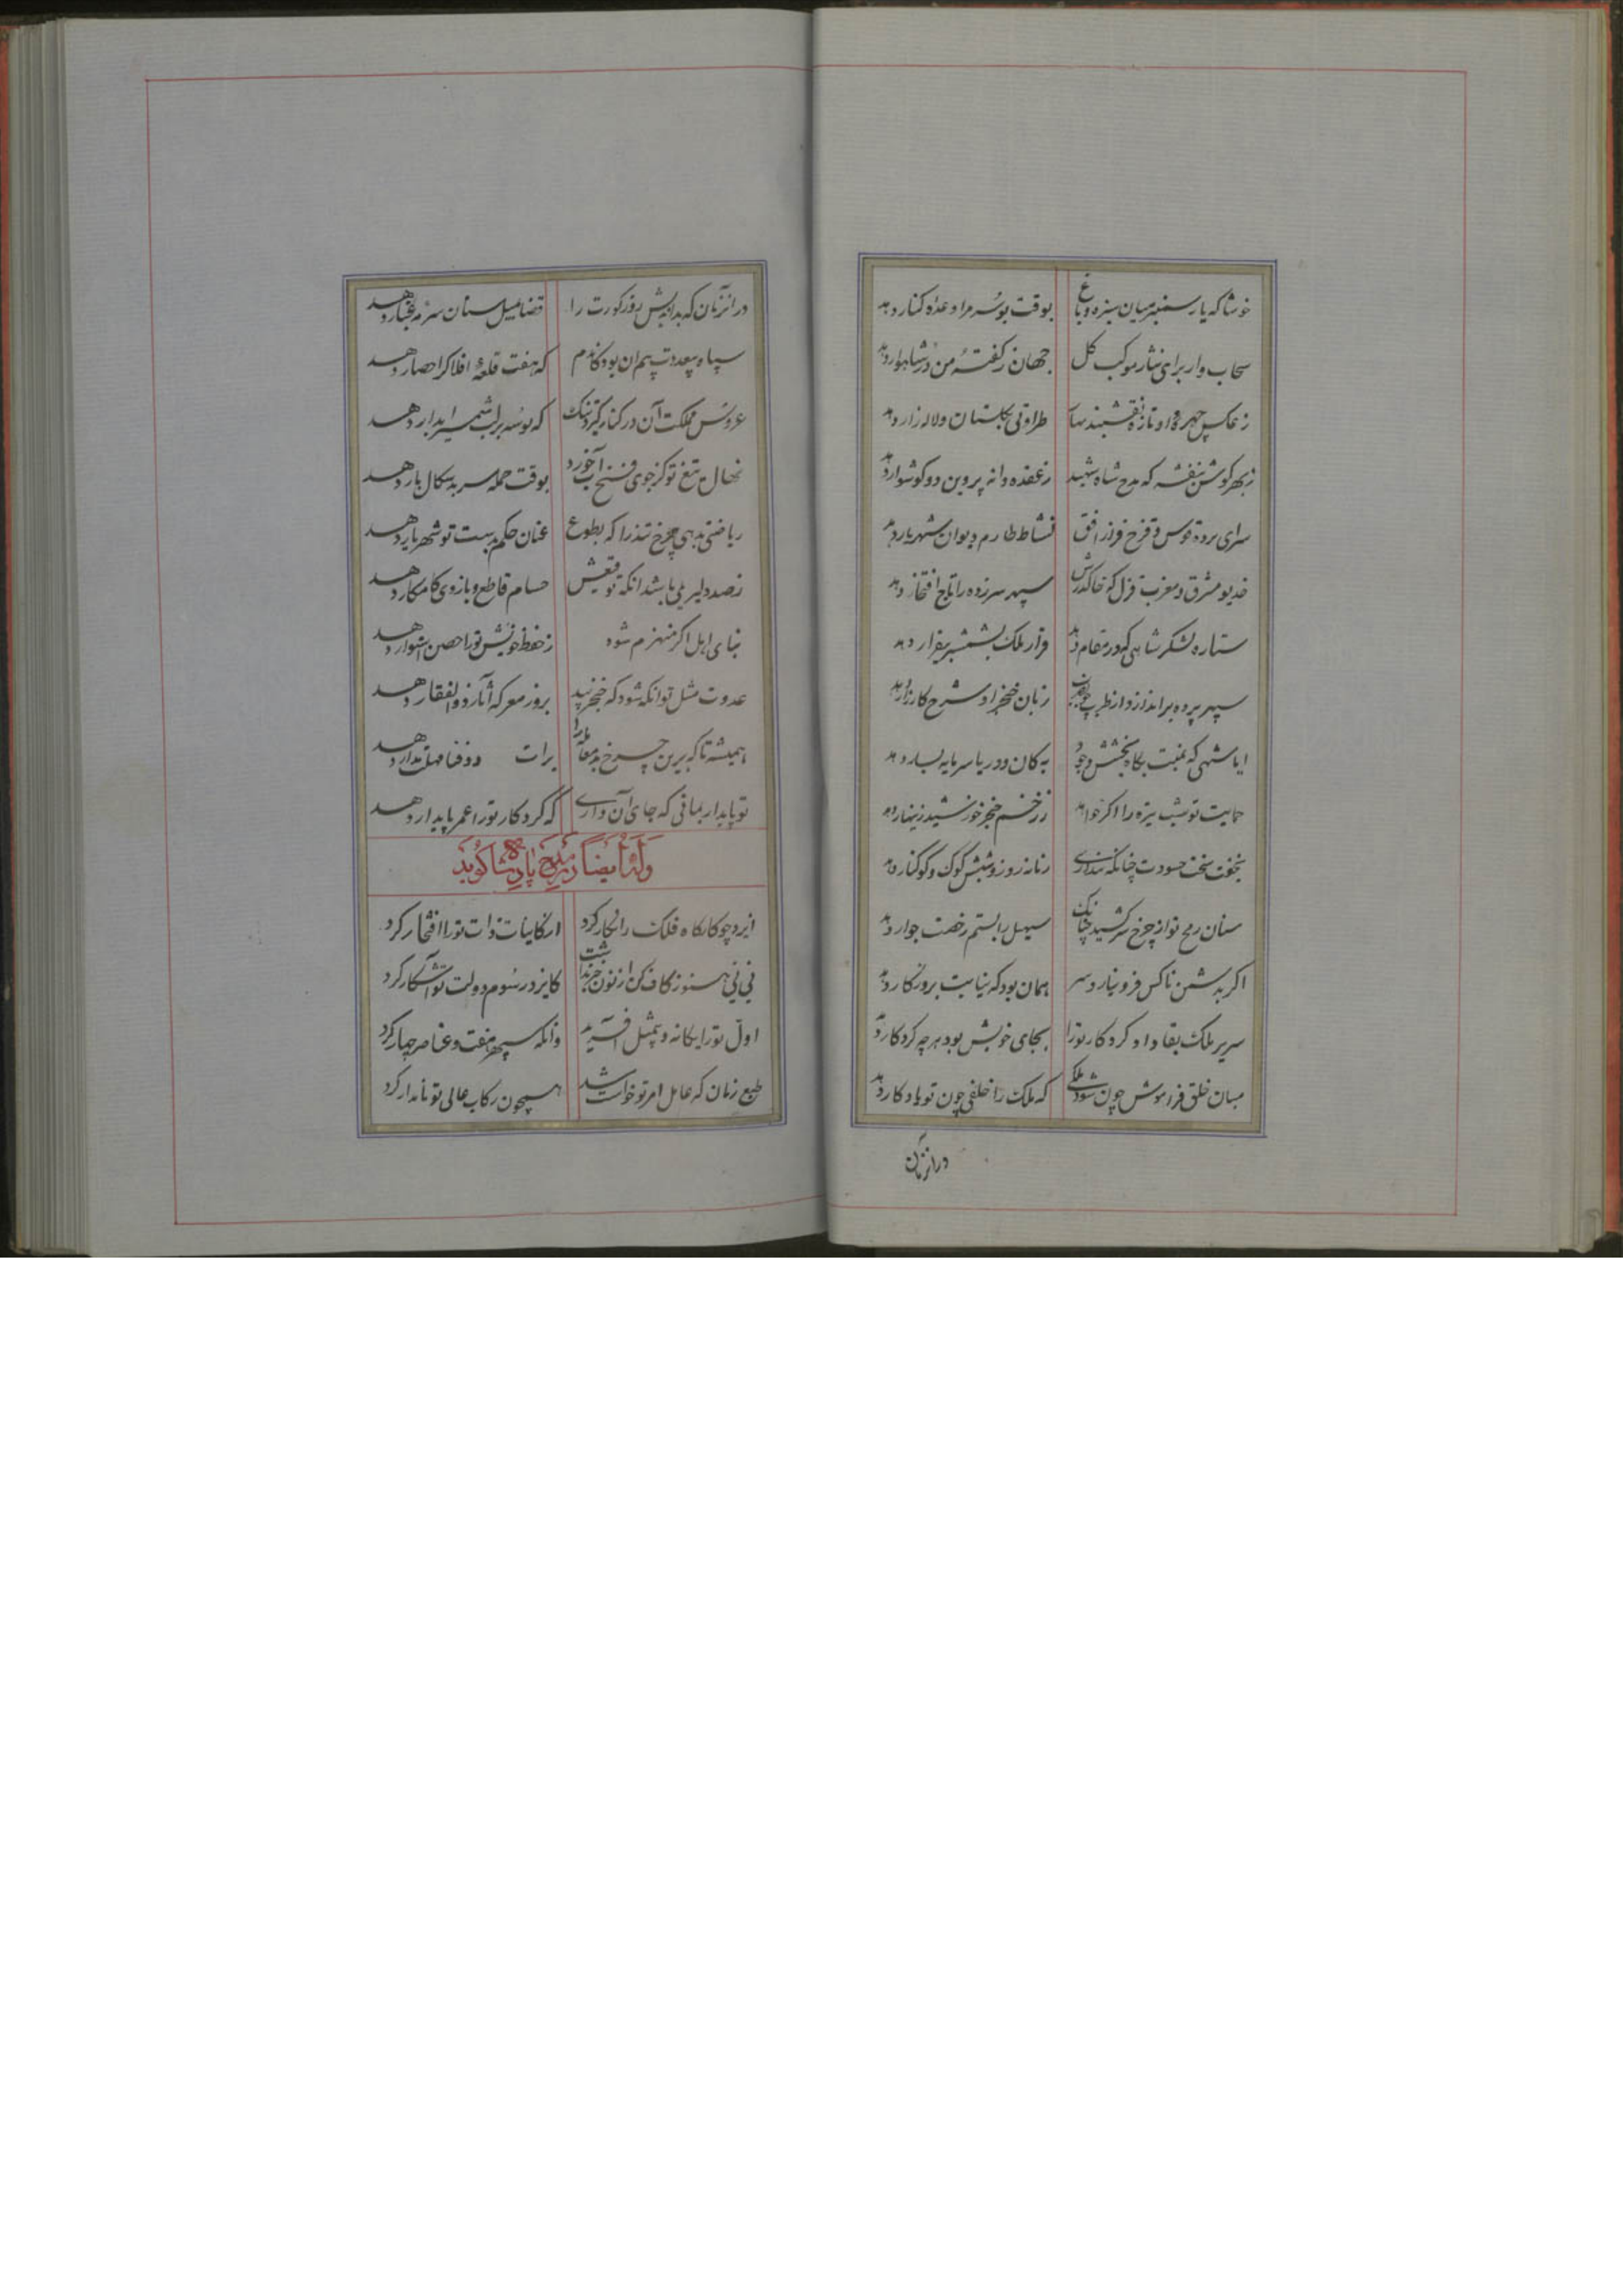 خوشا که یار سمنبر میان سبزه و باغ بوقت بوسه مرا وعده کنار دهد
سحاب وار برای نثار موکب گل جهان ز گفتهٔ من در شاهوار دهد
ز عکس چهره او تازه نقشبند بهار طراوتی بگلستان و لاله زار دهد
ز بهر گوش بنفشه که مدح شاه شنید ز عقده دانه پروین دو گوشوار دهد
سرای پرده قوس و قزح فراز افق نشاط طارم و ایوان شهریار دهد
خدیو مشرق و مغرب قزل که خاک درش سپهر سرزده را تاج افتخار دهد
ستاره لشکر شاهی که در مقام قرار ملک بشمشیر بیقرار دهد
سپهر پرده براندازد از طرب چون زبان خنجر او شرح کارزار دهد
ایا شهی که نمیت بگاه بخشش وجود به کان و دریا سرمایه یسار دهد
حمایت تو شب تیره را اگر خواهد ز زخم خنجر خورشید زینهار دهد
بخفت بخت حسودت چنانکه پنداری زمانه روز و شبش کوک و کوکنار دهد
سنان رمح تو از چرخ سرکشید چنانک سهیل رابستم رخصت جوار دهد
اگر بدشمن ناکس فرو نیارد سر همان بود که نیابت بروزگار دهد
سریر ملک بقا داد کردگار تو را بجای خویش بود هر چه کردگار دهد
میان خلق فراموش چون شود ملکی که ملک را خلفی چون تو یادگار دهد
در انزمان
در انزمان که بداندیش روز کورت را قضا میل سنان سرمه غبار دهد
سپاه بیعددت پیم ان بود کاندم که هفت قلعهٔ افلاک را حصار دهد
عروس مملکت آن در کنار گیرد تنگ که بوسه بر لب شمشیر ابدار دهد
نهال تیغ تو کز جوی فتح آب خورد بوقت حمله سر بدسکال بار دهد
ریاضتی بدهی چرخ تند را که بطوع عنان حکم بدست تو شهریار دهد
ز صد دلیر یلی باشد انکه توقیعش حسام قاطع و بازوی کامکار دهد
بنای اهل اگر منهزم شود ز حفظ خویش تو را حصن استوار دهد
عدوت مثل تو انگه شود که خنجر بید بروز معرکه آثار ذوالفقار دهد
همیشه تا که برین چرخ بد معامله را برات دور فنا مهلت مدار دهد
تو پایدار بمانی که جای آن داری که کردگار تو را عمر پایدار دهد
وله ایضاً در مدح پادشاه گوید
ایزد چو کارگاه فلک را نگار کرد از کاینات ذات تو را افتخار کرد
نی نی هنوز کاف کن از نون خبر نداشت کایزد رسوم دولت تو آشکار کرد
اول تو را یگانه و بیمثل آفرید وانگه سپهر هفت و عناصر چهار کرد
طبع زمان که عامل امر تو خواست شد همچون رکاب عالی تو نامدار کرد